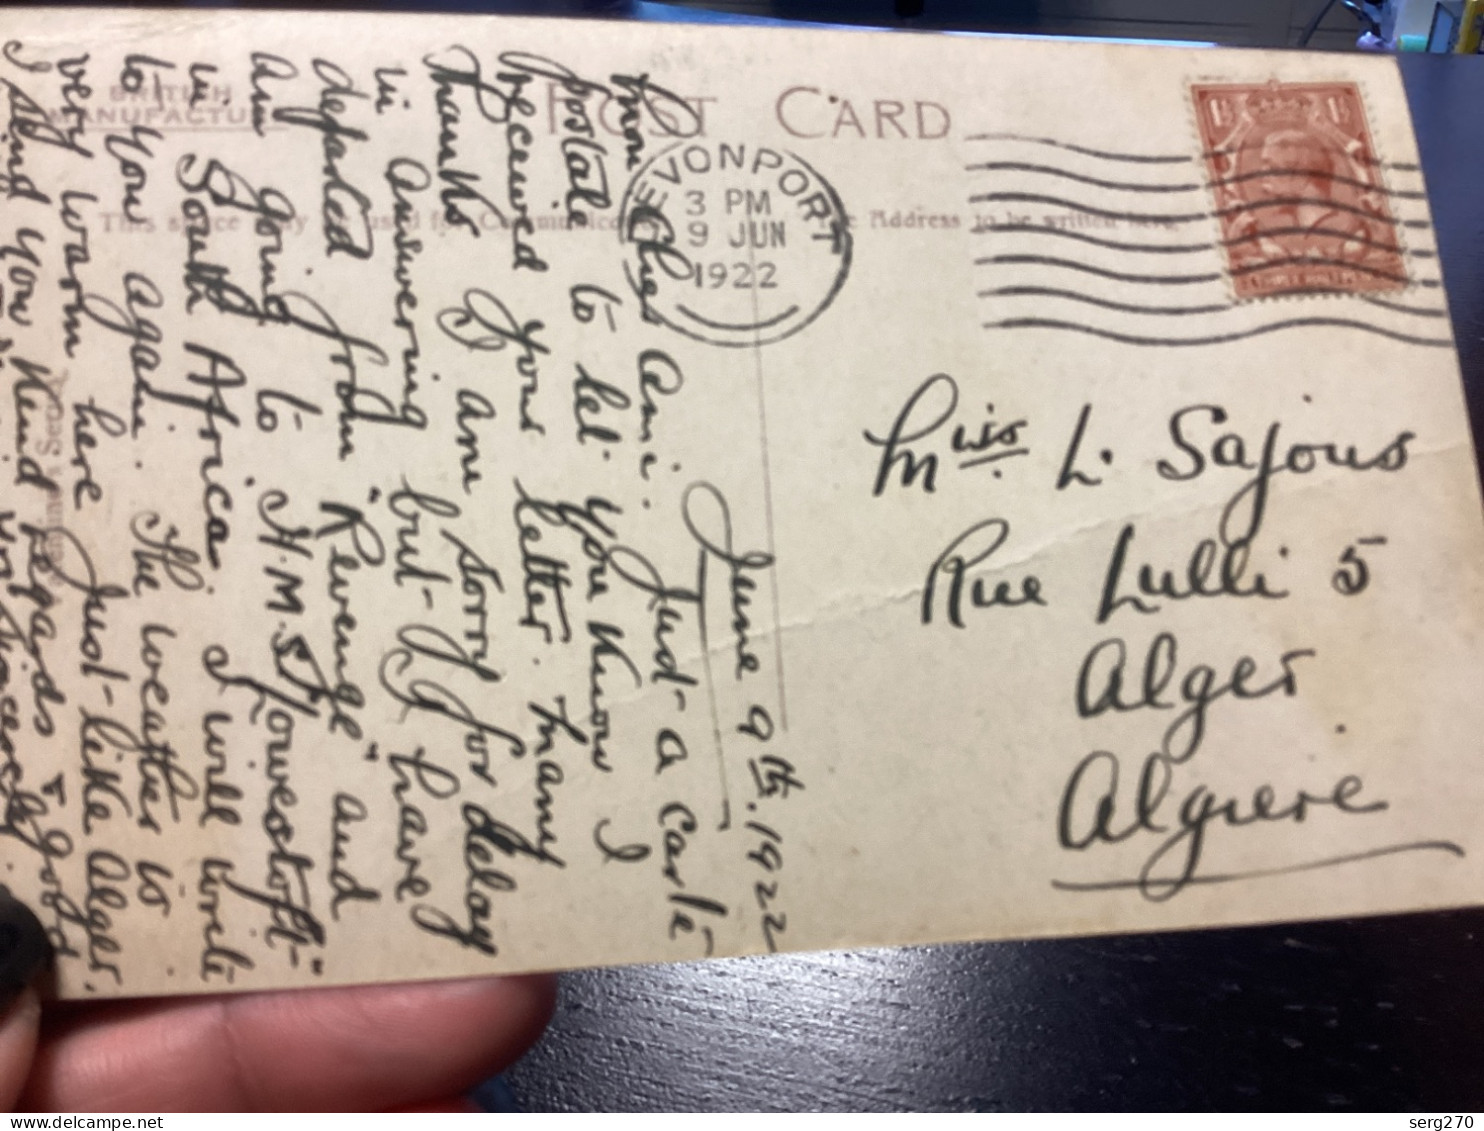 POST CARD
BRITISH
MANUFACTURE
The Address to be written here.
DEVONPORT
3 PM
9 JUN
1922
Miss L. Sajous
Rue Lulli 5
Alger
Algiere
June 9th. 1922
Mon Cher Ami. Just a carte
postale to let you know I
received your letter. Many
Thanks I am sorry for delay
in answering but I have
departed from "Revenge" and
am going to H.M.S. "Lowestoft"
in South Africa. I will write
to you again. The weather is
very warm here just like Alger.
I send you kind regards & good
serg270